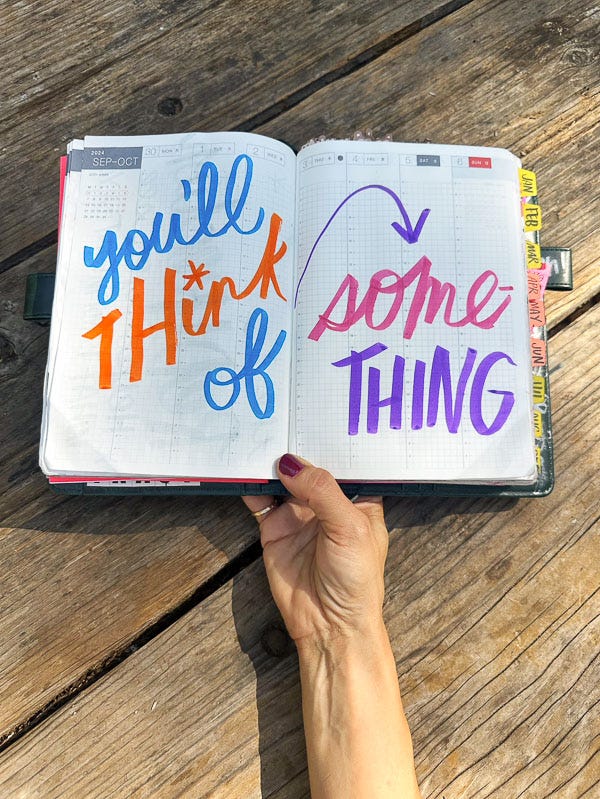 2024
SEP-OCT
30 MON
1 TUE
2
3 THU
4 FRI
5 SAT
6 SUN
you'll
THink
of
some-
THING
JAN
FEB
MAR
APR
MAY
JUN